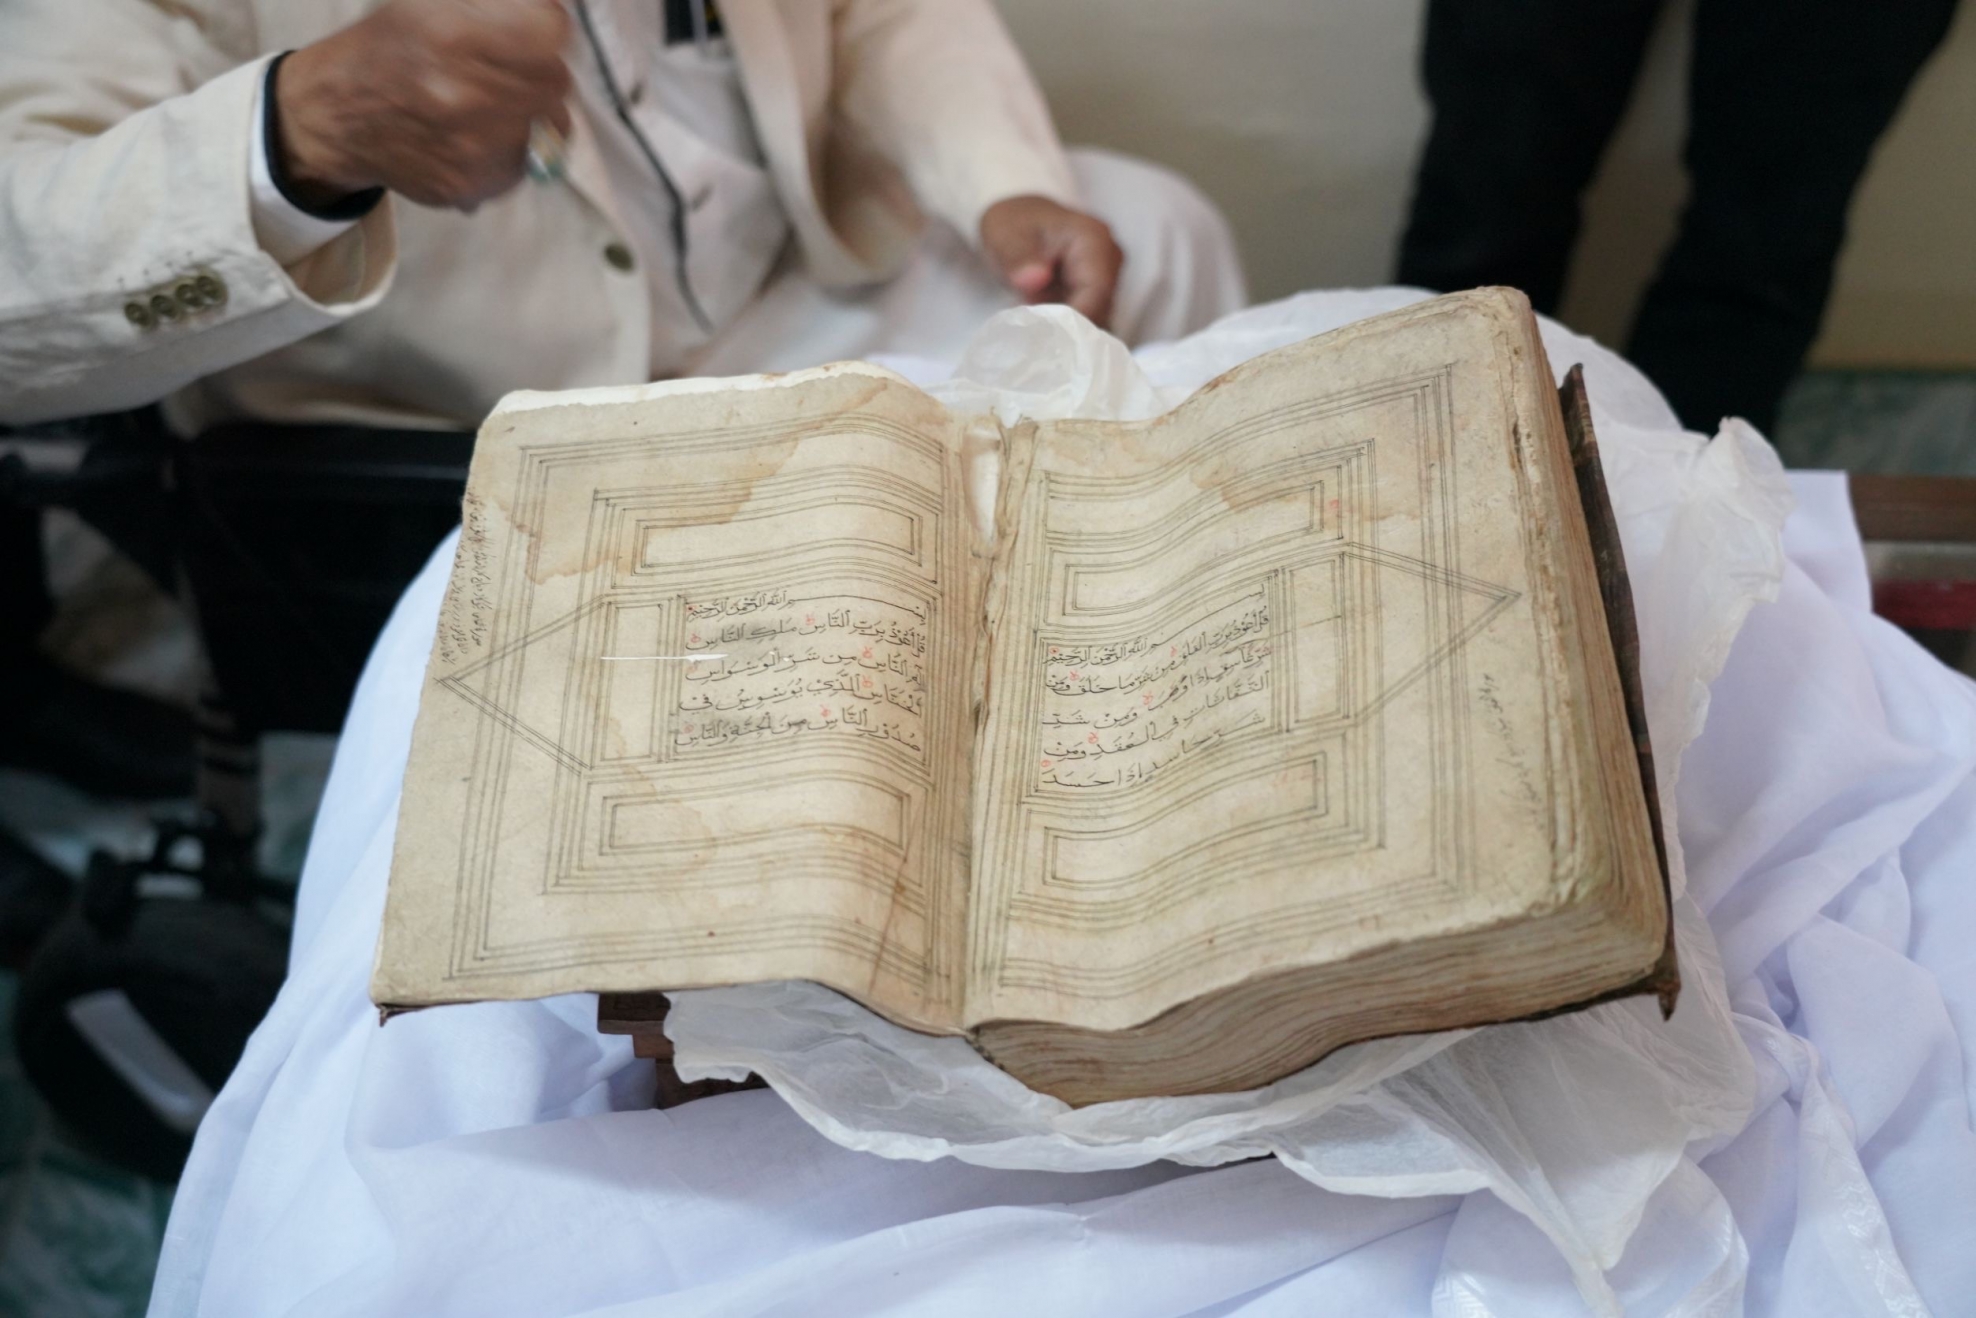 بسم الله الرحمن الرحيم
قل أعوذ برب الفلق من
شر ما خلق ومن
شر غاسق إذا وقب ومن شر
النفاثات في العقد ومن
شر حاسد إذا حسد
بسم الله الرحمن الرحيم
قل أعوذ برب الناس ملك الناس
إله الناس من شر الوسواس
الخناس الذي يوسوس في
صدور الناس من الجنة والناس